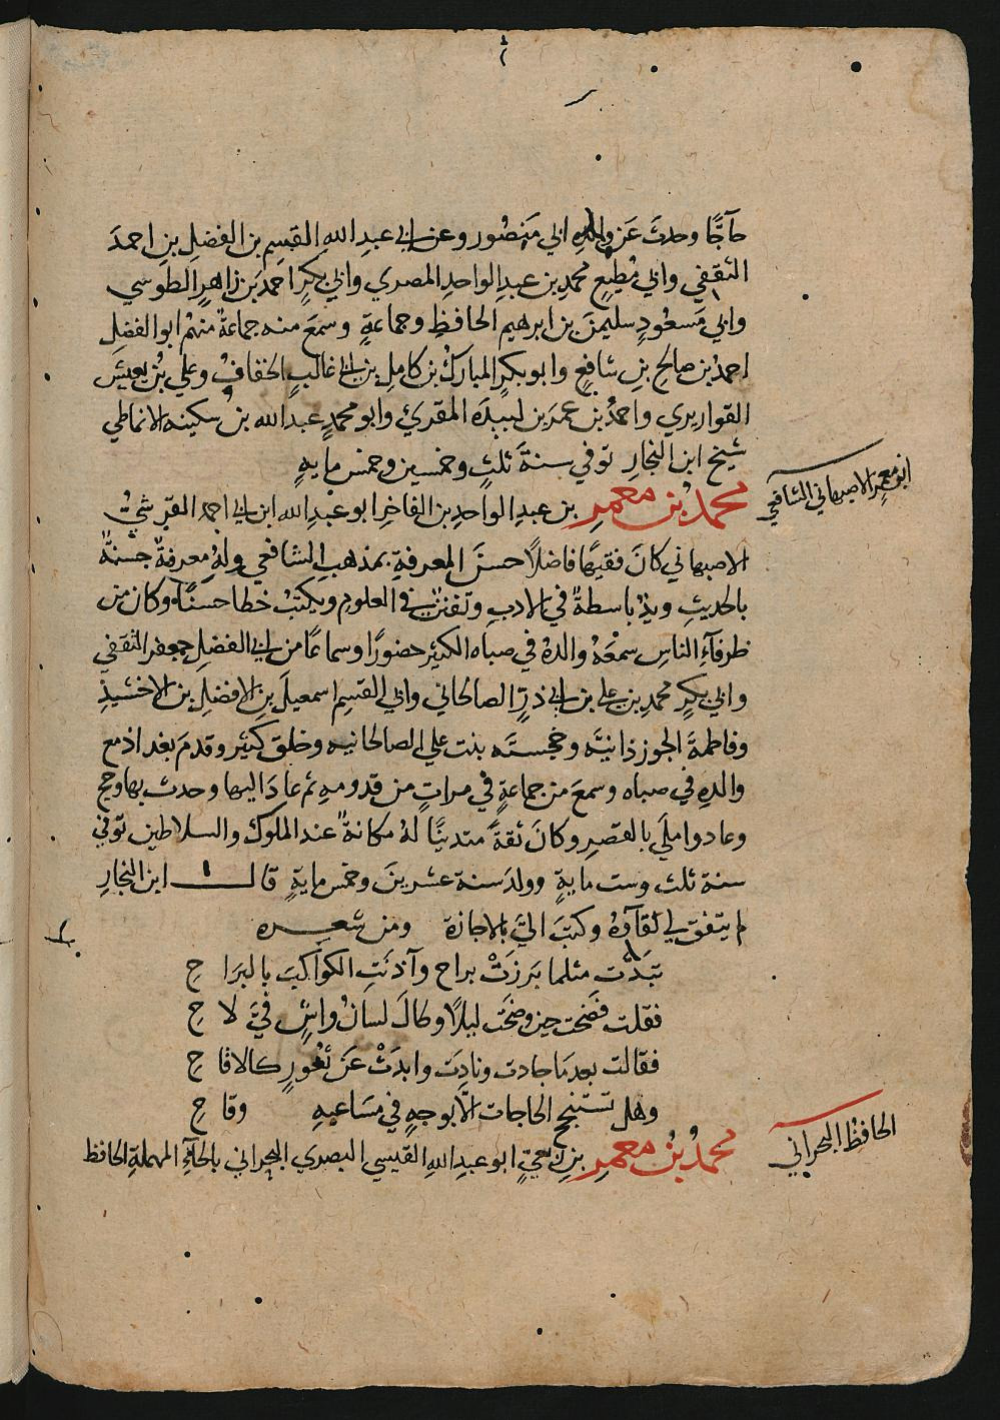 حآجًّا وحدث عَن والده ابي مَنصُور وعن ابي عبدِ اللهِ القسِم بن الفضلِ بنِ احمدَ
الثقفي وابي مُطيعٍ محمدِ بن عبدِ الواحدِ المصري وابي بكرٍ احمدَ بن زاهرٍ الطوسي
وابي مَسعُودٍ سليمنَ بن ابرهيم الحافظِ وجماعةٍ وسمعَ منه جماعةٌ منهُم ابو الفضلِ
احمدُ بن صالحِ بنِ شافعٍ وابو بكرٍ المباركُ بن كاملِ بن ابي غالبٍ الخفافُ وعلي بنُ يعيشَ
القواريري واحمدُ بن عمرَ بن لبيدَه المقرئ وابو محمدٍ عبد الله بن سكينه الانماطي
شيخ ابن النجارِ توفي سنةَ ثلثٍ وخمسين وخمس مايهٍ
محمدُ بن معمرِ بن عبدِ الواحدِ بن الفاخرِ ابو عبدِ الله ابن ابي احمد القرشيُّ
ابن معمر الاصبهاني الشافعي
الاصبهاني كانَ فقيهًا فاضلًا حسنَ المعرفةِ بمذهبِ الشافعي ولهُ معرفةٌ حسَنَةٌ
بالحديثِ ويدٌ باسطةٌ في الادبِ وتفنن في العلومِ ويكتبُ خطا حسنًا وكان من
ظرفآءِ الناسِ سمعَهُ والدهُ في صباه الكثير حضورًا وسماعًا من ابي الفضلِ جعفر الثقفي
وابي بكرٍ محمدِ بن علي بن ابي ذرٍّ الصالحاني وابي القسِم اسمعيلَ بنِ الافضلِ بن الاخشيذِ
وفاطمةَ الجوزذانيَّه وخجسته بنت علي الصالحانيه وخلق كثير وقدمَ بغداذ مع
والدهِ في صباه وسمعَ من جماعةٍ في مراتٍ من قدومهِ ثم عادَ اليها وحدث بها وحج
وعاد واملَى بالقصرِ وكانَ ثقةً متدينًا لهُ مكانةٌ عند الملوك والسلاطين توفي
سنة ثلث وست مايةٍ وولدَ سنة عشرينَ وخمس مايةٍ قال ابن النجارِ
لم يتفق لي لقآؤهُ وكتبَ اليَّ بالاجازة ومن شعره
تبَدَّت مثلما بَرزَتْ براح وآذنَتِ الكواكبَ بالبرَا ح
فقلت فضَحت حين وضحَت ليلًا وطالَ لسانُ واشٍ فيَّ لا ح
فقالت بعد مَا جادت ونادَت وابدَتْ عَن ثغورٍ كالاقا ح
وهل تستنجح الحاجات الّا بوجهٍ في مسَاعيهِ وقا ح
محمدُ بنُ معمرِ بنِ ربعيٍّ ابو عبدِ اللهِ القيسي البصري البحراني بالحآءِ المهملةِ الحافظ
الحافظُ البحراني